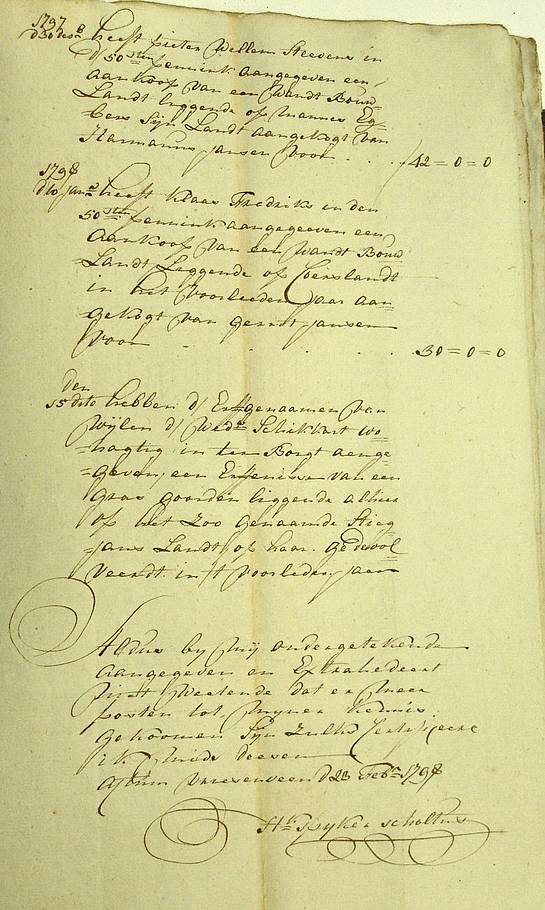 1797
d 30 dec heeft Pieter Willem Steevens in
d 50 sten pennink aangegeven een
aankoop van een Wandt Bouw
Landt liggende op Mannes Eg-
bers Sijn Landt aangekogt van
Harmannus Jansen voor . . . 42=0=0
1798
d 10 Jan heeft Klaas Fredriks in den
50 sten pennink aangegeeven een
aankoop van een Wandt Bouw
Landt Leggende op Coerslandt
in het voorleeden Jaar aan-
gekogt van Gerrit Jansen
voor . . . . . 30=0=0
den
15 dito hebben d Erfgenaamen van
Wijlen d Wede Schikkart wo-
nagtig in ten Borgt aange-
geven, een Erfenisse van een
Gras goorden liggende alhier
op het Zoo genaamde Stieg
Jans Landt op haar gedevol
veerdt in 't voorleden Jaar
Aldus by mij ondergetekende
aangegeven en Extrahedeert
niet Weetende dat er meer
posten tot mijner kennis
gekoomen Sijn Zulks Certificeere
ik mids deesen
Actum Vriesenveen d 23 Feb 1798
Hk Spyker scholtus